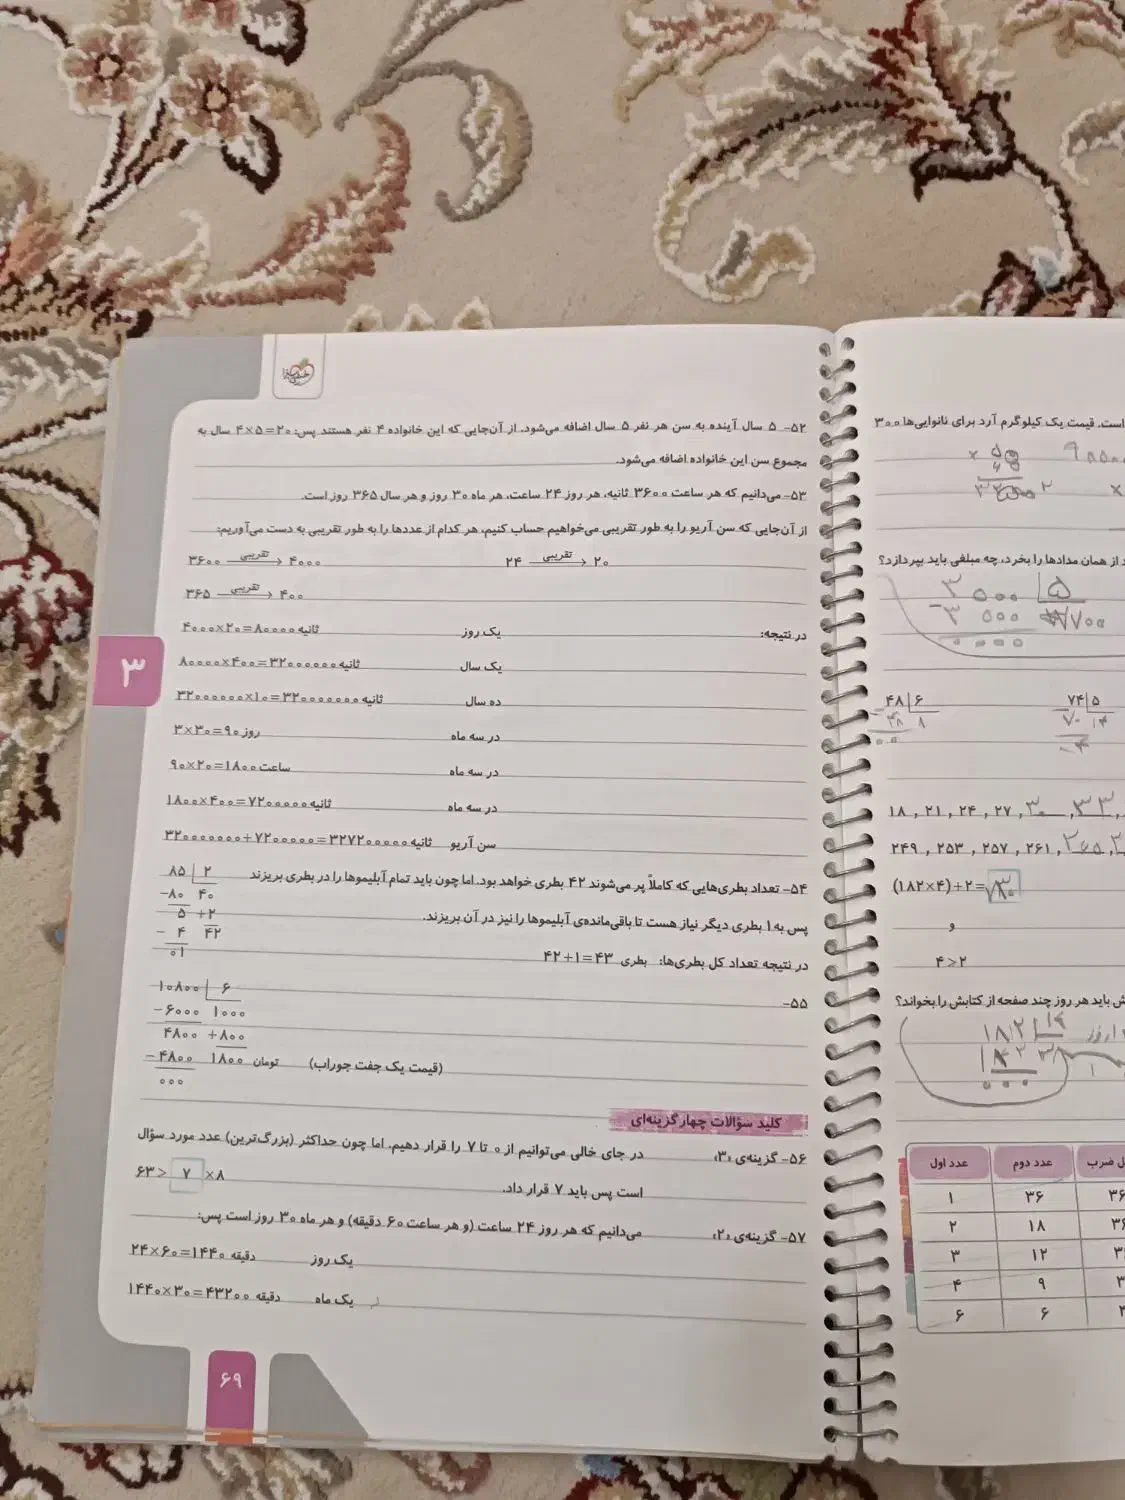 ۵۲- ۵ سال آینده به سن هر نفر ۵ سال اضافه می‌شود. از آن‌جایی که این خانواده ۴ نفر هستند پس: ۲۰=۵×۴ سال به
مجموع سن این خانواده اضافه می‌شود.
۵۳- می‌دانیم که هر ساعت ۳۶۰۰ ثانیه، هر روز ۲۴ ساعت، هر ماه ۳۰ روز و هر سال ۳۶۵ روز است.
از آن‌جایی که سن آریو را به طور تقریبی می‌خواهیم حساب کنیم، هر کدام از عددها را به طور تقریبی به دست می‌آوریم:
۲۴ تقریبی → ۲۰ ۳۶۰۰ تقریبی → ۴۰۰۰
۳۶۵ تقریبی → ۴۰۰
در نتیجه: یک روز ثانیه ۸۰۰۰۰=۲۰×۴۰۰۰
یک سال ثانیه ۳۲۰۰۰۰۰۰=۴۰۰×۸۰۰۰۰
ده سال ثانیه ۳۲۰۰۰۰۰۰۰=۱۰×۳۲۰۰۰۰۰۰
در سه ماه روز ۹۰=۳۰×۳
در سه ماه ساعت ۱۸۰۰=۲۰×۹۰
در سه ماه ثانیه ۷۲۰۰۰۰۰=۴۰۰×۱۸۰۰
سن آریو ثانیه ۳۲۷۲۰۰۰۰۰=۷۲۰۰۰۰۰+۳۲۰۰۰۰۰۰۰
۵۴- تعداد بطری‌هایی که کاملاً پر می‌شوند ۴۲ بطری خواهد بود. اما چون باید تمام آبلیموها را در بطری بریزند
پس به ۱ بطری دیگر نیاز هست تا باقی‌مانده‌ی آبلیموها را نیز در آن بریزند.
در نتیجه تعداد کل بطری‌ها: بطری ۴۳=۱+۴۲
۸۵ ۲
-۸۰ ۴۰
۵ +۲
- ۴ ۴۲
۰۱
۵۵-
۱۰۸۰۰ ۶
-۶۰۰۰ ۱۰۰۰
۴۸۰۰ +۸۰۰
-۴۸۰۰ ۱۸۰۰ تومان (قیمت یک جفت جوراب)
۰۰۰
کلید سؤالات چهارگزینه‌ای
۵۶- گزینه‌ی «۳» در جای خالی می‌توانیم از ۰ تا ۷ را قرار دهیم. اما چون حداکثر (بزرگ‌ترین) عدد مورد سؤال
است پس باید ۷ قرار داد. ۶۳ > ۷ ×۸
۵۷- گزینه‌ی «۲» می‌دانیم که هر روز ۲۴ ساعت (و هر ساعت ۶۰ دقیقه) و هر ماه ۳۰ روز است پس:
یک روز دقیقه ۱۴۴۰=۶۰×۲۴
یک ماه دقیقه ۴۳۲۰۰=۳۰×۱۴۴۰
۳
۶۹
است. قیمت یک کیلوگرم آرد برای نانوایی‌ها ۳۰۰
از همان مدادها را بخرد، چه مبلغی باید بپردازد؟
۳۰۰۰ ۵
-۳۰۰۰
۰۰۰۰
۷۴ ۵ ۴۸ ۶
۷۰ ۱۴ ۴۸ ۸
۱۸ , ۲۱ , ۲۴ , ۲۷ , ۳۰ , ۳۳
۲۴۹ , ۲۵۳ , ۲۵۷ , ۲۶۱ , ۲۶۵
(۱۸۲×۴)+۲=
و
۴>۲
باید هر روز چند صفحه از کتابش را بخواند؟
۱۸۲ ۱۴
عدد اول عدد دوم ضرب
۱ ۳۶
۲ ۱۸
۳ ۱۲
۴ ۹
۶ ۶